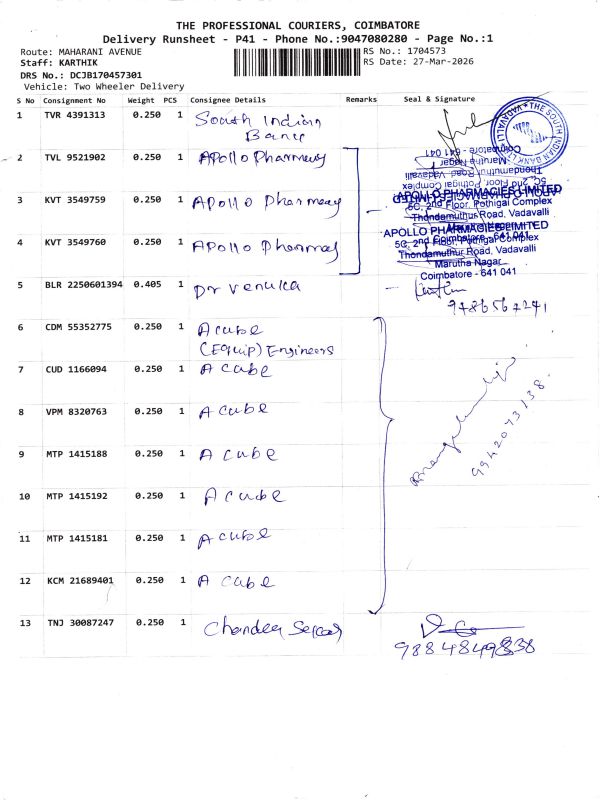 THE PROFESSIONAL COURIERS, COIMBATORE
Delivery Runsheet - P41 - Phone No.:9047080280 - Page No.:1
Route: MAHARANI AVENUE
RS No.: 1704573
Staff: KARTHIK
RS Date: 27-Mar-2026
DRS No.: DCJB170457301
Vehicle: Two Wheeler Delivery
S No Consignment No Weight PCS Consignee Details Remarks Seal & Signature
1 TVR 4391313 0.250 1 South Indian
Bank
THE SOUTH INDIAN BANK LTD
VADAVALLI
2 TVL 9521902 0.250 1 Apollo Pharmacy
Coimbatore - 641 041
Marutha Nagar
Thondamuthur Road, Vadavalli
5C, 2nd Floor, Pothigal Complex
APOLLO PHARMACIES LIMITED
3 KVT 3549759 0.250 1 Apollo Pharmacy
APOLLO PHARMACIES LIMITED
5C, 2nd Floor, Pothigal Complex
Thondamuthur Road, Vadavalli
Coimbatore - 641 041
4 KVT 3549760 0.250 1 Apollo Pharmacy
APOLLO PHARMACIES LIMITED
5C, 2nd Floor, Pothigal Complex
Thondamuthur Road, Vadavalli
Marutha Nagar
Coimbatore - 641 041
5 BLR 2250601394 0.405 1 Dr Venuka
9486567241
6 CDM 55352775 0.250 1 A cube
(Equip) Engineers
7 CUD 1166094 0.250 1 A cube
8 VPM 8320763 0.250 1 A cube
9 MTP 1415188 0.250 1 A cube
9942073138.
10 MTP 1415192 0.250 1 A cube
11 MTP 1415181 0.250 1 A cube
12 KCM 21689401 0.250 1 A cube
13 TNJ 30087247 0.250 1 Chander Sekar
9884849838